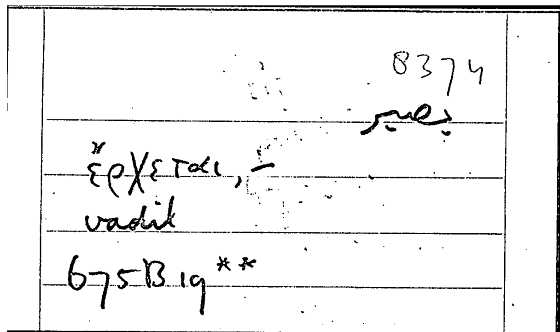 8374
يصير
ἔρχεται, –
vadit
675B19**